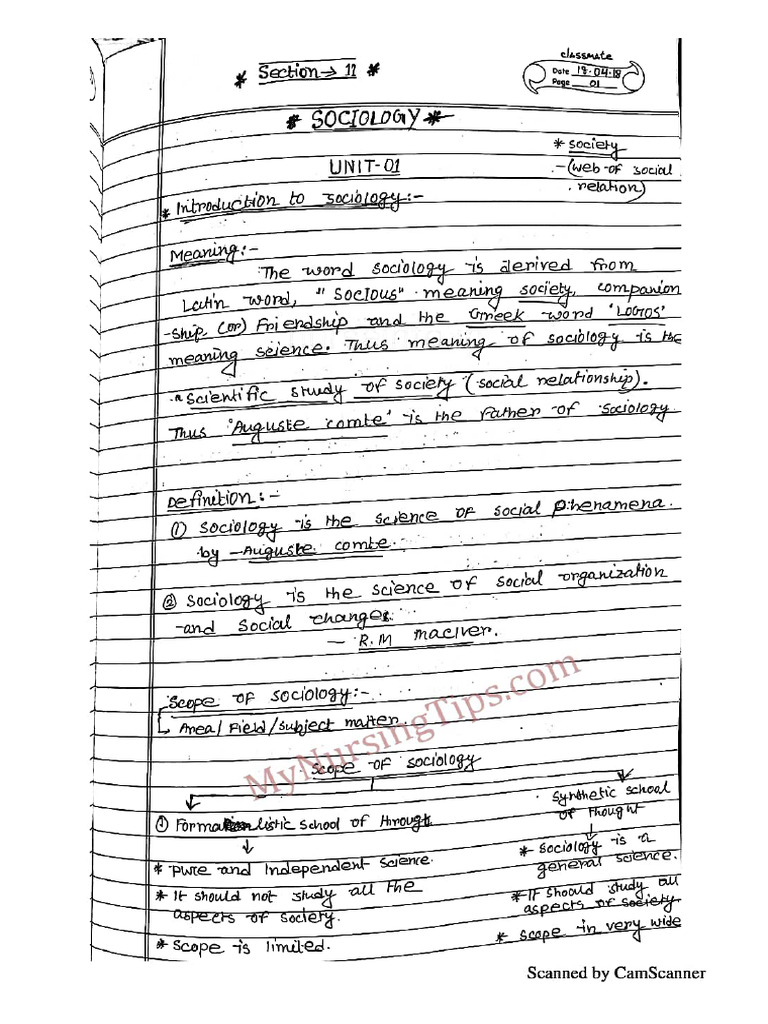 classmate
* Section → 11 *
Date 18.04.18
Page 01
* SOCIOLOGY *
* society
- (web of social
relation)
UNIT-01
* Introduction to sociology:-
Meaning:-
The word sociology is derived from
Latin word, "Socious" meaning society, companion
-ship (or) Friendship and the Greek word 'LOGOS'
meaning science. Thus meaning of sociology is the
"Scientific study of society (social relationship).
Thus 'Auguste comte' is the father of sociology.
Definition:-
① Sociology is the science of social phenamena.
by - Auguste comte.
② Sociology is the science of social organization
and social changes.
- R.M maciver.
Scope of sociology:-
↳ Area/Field/subject matter.
Scope of sociology
① Formalistic School of throught
↓
* pure and Independent science.
* It should not study all the
aspects of society.
* Scope is limited.
synthetic school
of thought
↓
* Sociology is a
general science.
* It should study all
aspects of society.
* Scope in very wide
MyNursingTips.com
Scanned by CamScanner